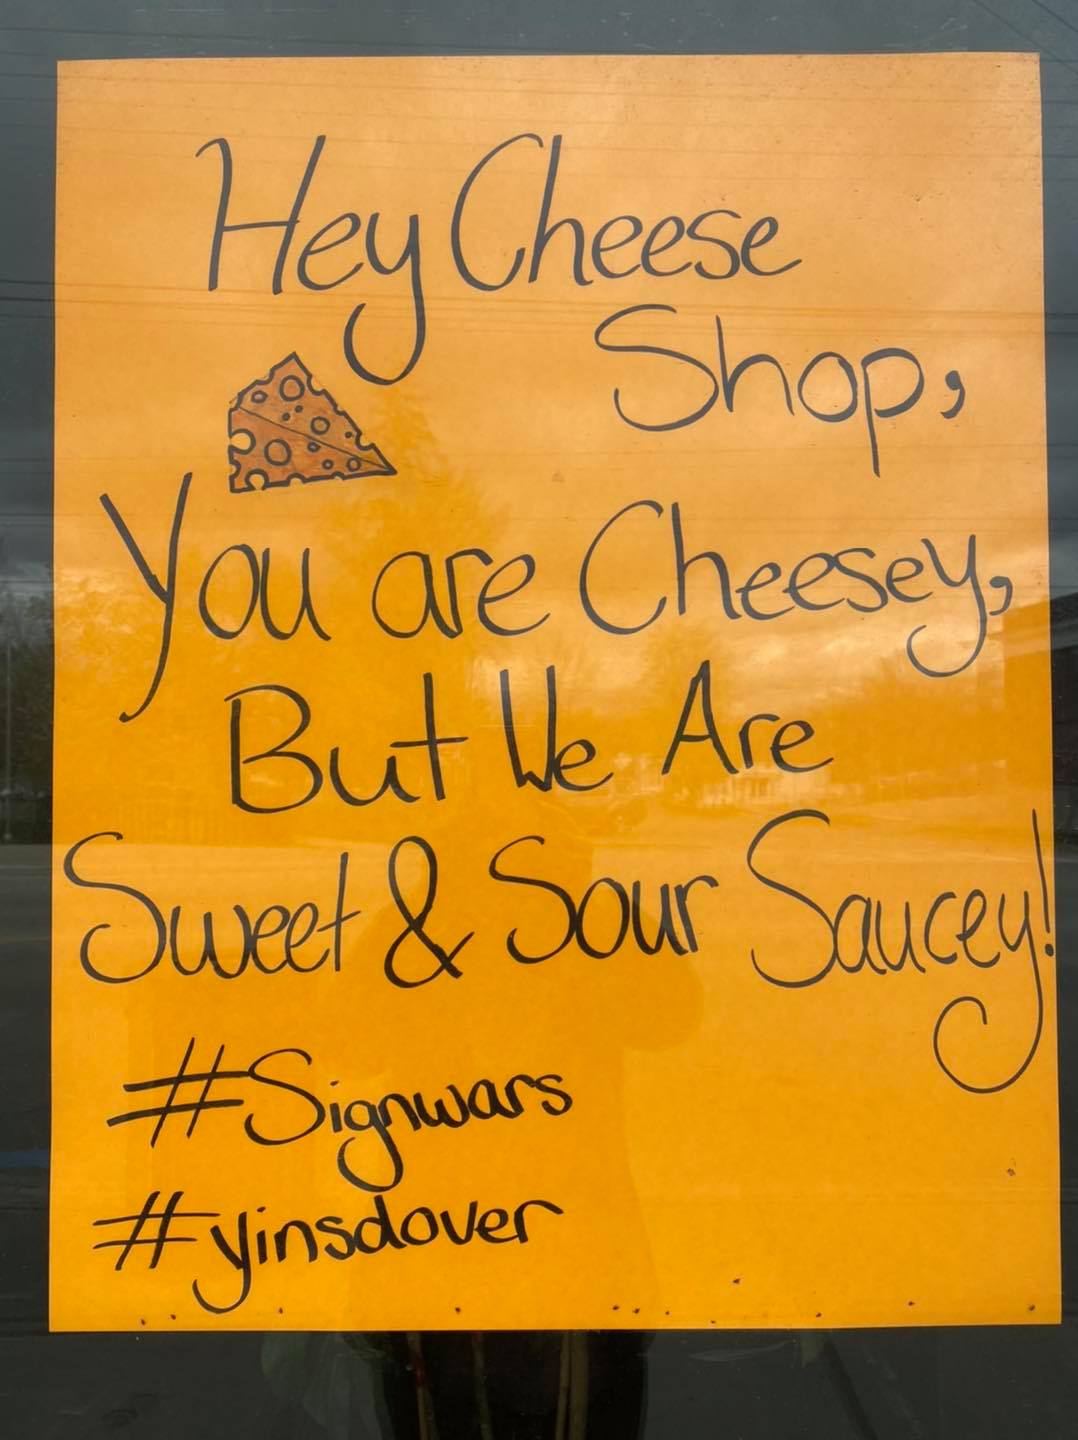 Hey Cheese
Shop,
You are Cheesey,
But We Are
Sweet & Sour Saucey!
#Signwars
#yinsdover